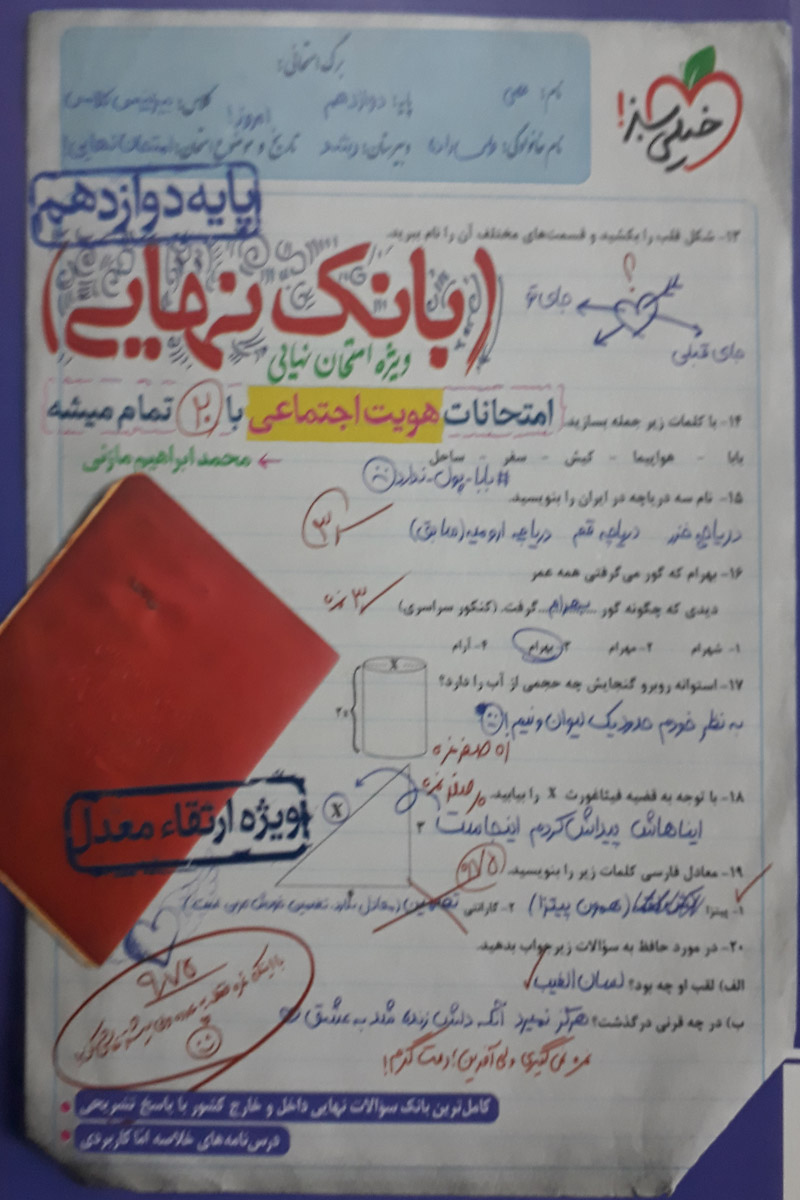 برگ امتحانی:
نام: علی پایه: دوازدهم کلاس:
نام خانوادگی: دبیرستان: رشد تاریخ و موضوع امتحان: امروز! امتحانات نهایی!
خیلی سبز!
پایه دوازدهم
۱۳- شکل قلب را بکشید و قسمت‌های مختلف آن را نام ببرید.
(بانک نهایی)
؟
جای تو
جای قبلی
ویژه امتحان نهایی
امتحانات هویت اجتماعی با ۲۰ تمام میشه
محمد ابراهیم مازنی
۱۴- با کلمات زیر جمله بسازید.
بابا - هواپیما - کیش - سفر - ساحل
#بابا-پول-ندارد
۱۵- نام سه دریاچه در ایران را بنویسید.
دریاچه خزر دریاچه قم دریاچه ارومیه (سابق)
۳
۱۶- بهرام که گور می‌گرفتی همه عمر
دیدی که چگونه گور ...بهرام... گرفت. (کنکور سراسری)
۳ نمره
۱- شهرام ۲- مهرام ۳- بهرام ۴- آرام
۱۷- استوانه روبرو گنجایش چه حجمی از آب را دارد؟
x
۲x
به نظر خودم حدود یک لیوان و نیم!
صفر نمره
۱۸- با توجه به قضیه فیثاغورث x را بیابید.
صفر نمره
ایناهاش پیداش کردم اینجاست
X
۳
ویژه ارتقاء معدل
۱۹- معادل فارسی کلمات زیر را بنویسید.
۰/۷۵
۱- پیتزا (همون پیتزا) ۲- گارانتی تضمین (معادل ندارد. تضمین خودش عربی است)
۲۰- در مورد حافظ به سؤالات زیر جواب بدهید.
الف) لقب او چه بود؟ لسان الغیب
ب) در چه قرنی درگذشت؟ هرگز نمیرد آنکه دلش زنده شد به عشق
نمره نمی‌گیری ولی آفرین! دمت گرم!
۹/۷۵
کامل‌ترین بانک سوالات نهایی داخل و خارج کشور با پاسخ تشریحی
درس‌نامه‌های خلاصه اما کاربردی